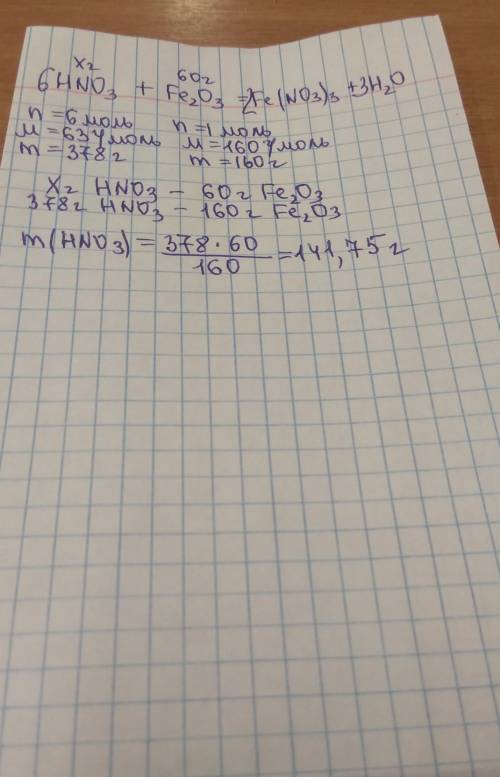 xг 60г
6HNO3 + Fe2O3 = 2Fe(NO3)3 + 3H2O
n = 6 моль n = 1 моль
M = 63 г/моль M = 160 г/моль
m = 378 г m = 160 г
Xг HNO3 - 60г Fe2O3
378г HNO3 - 160г Fe2O3
m(HNO3) = 378 · 60 / 160 = 141,75 г